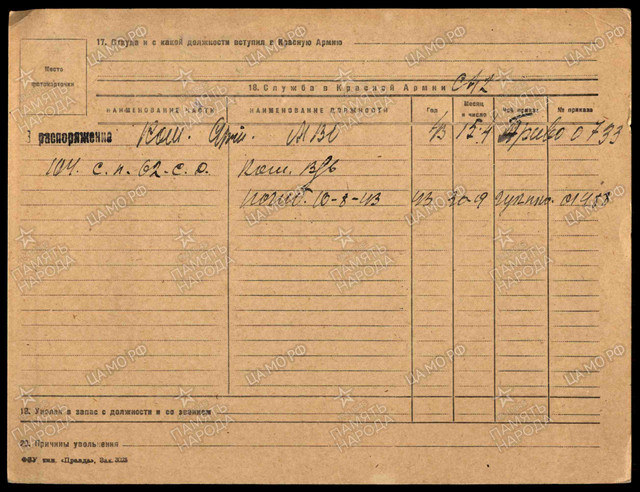 17. Откуда и с какой должности вступил в Красную Армию
Место
фотокарточки
18. Служба в Красной Армии
НАИМЕНОВАНИЕ ЧАСТИ
НАИМЕНОВАНИЕ ДОЛЖНОСТИ
Год
Месяц
и число
Чей приказ
№ приказа
В распоряжение Ком. Арт. МВО 43 15-4 0733
104 с.п. 62 с.д. Ком. взв
погиб 10-8-43 43 30-9 01458
19. Уволен в запас с должности и ее званием
20. Причины увольнения
ФБУ тип. «Правда», Зак. 3023
ПАМЯТЬ НАРОДА
ЦАМО.РФ